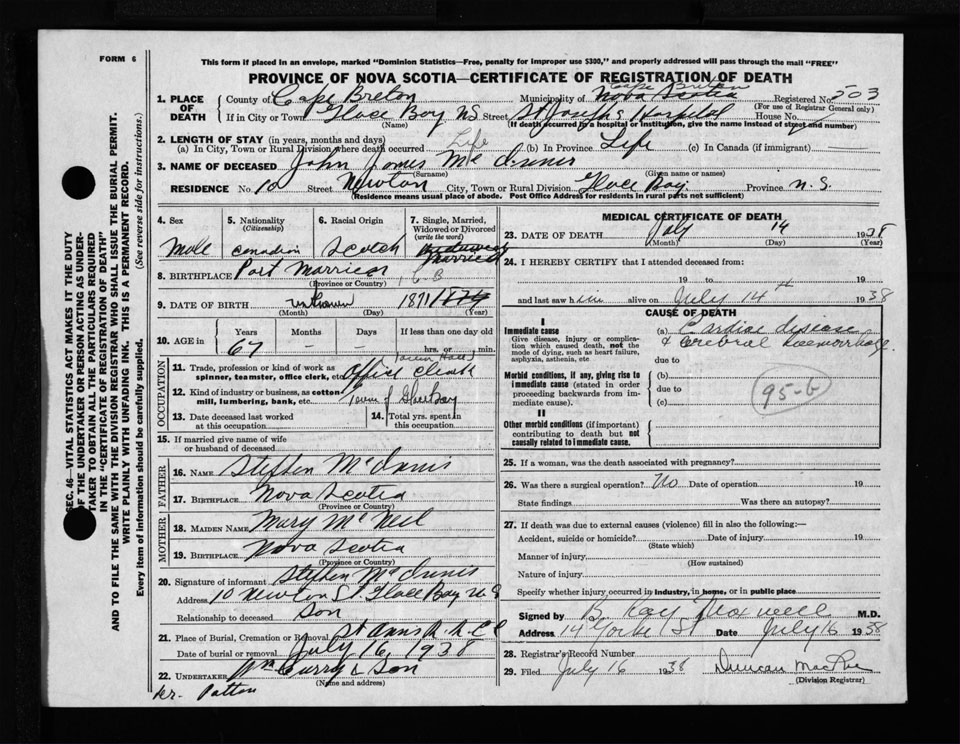 This form if placed in an envelope, marked "Dominion Statistics—Free, penalty for improper use $300," and properly addressed will pass through the mail "FREE"
FORM 6
PROVINCE OF NOVA SCOTIA—CERTIFICATE OF REGISTRATION OF DEATH
1. PLACE OF DEATH
County of Cape Breton Municipality of Cape Breton Nova Scotia Registered No. 503
(For use of Registrar General only)
If in City or Town Glace Bay N.S. Street St Josephs Hospital House No.
(Name) (If death occurred in a hospital or institution, give the name instead of street and number)
2. LENGTH OF STAY (in years, months and days)
(a) In City, Town or Rural Division where death occurred Life (b) In Province Life (c) In Canada (if immigrant)
3. NAME OF DECEASED John James
(Surname) (Given name or names)
RESIDENCE No. 10 Street Newton City, Town or Rural Division Glace Bay Province N.S.
(Residence means usual place of abode. Post Office Address for residents in rural parts not sufficient)
SEC. 46—VITAL STATISTICS ACT MAKES IT THE DUTY
OF THE UNDERTAKER OR PERSON ACTING AS UNDER-
TAKER TO OBTAIN ALL THE PARTICULARS REQUIRED
IN THE "CERTIFICATE OF REGISTRATION OF DEATH"
AND TO FILE THE SAME WITH THE DIVISION REGISTRAR WHO SHALL ISSUE THE BURIAL PERMIT.
WRITE PLAINLY WITH UNFADING INK. THIS IS A PERMANENT RECORD.
Every item of information should be carefully supplied. (See reverse side for instructions.)
4. Sex
Male
5. Nationality
(Citizenship)
Canadian
6. Racial Origin
Scotch
7. Single, Married,
Widowed or Divorced
(write the word)
Married
8. BIRTHPLACE Port C B
(Province or Country)
9. DATE OF BIRTH unknown 1871 1874
(Month) (Day) (Year)
10. AGE in
Years Months Days If less than one day old
67 – – hrs. or min.
OCCUPATION
Town Hall
11. Trade, profession or kind of work as
spinner, teamster, office clerk, etc. Office
12. Kind of industry or business, as cotton
mill, lumbering, bank, etc. Town of Glace Bay
13. Date deceased last worked
at this occupation
14. Total yrs. spent in
this occupation
15. If married give name of wife
or husband of deceased
FATHER
16. NAME Stephen McInnis
17. BIRTHPLACE Nova Scotia
(Province or Country)
MOTHER
18. MAIDEN NAME Mary McNeil
19. BIRTHPLACE Nova Scotia
(Province or Country)
20. Signature of informant Stephen McInnis
Address 10 Newton St Glace Bay N S
Relationship to deceased Son
21. Place of Burial, Cremation or Removal St Anns
Date of burial or removal July 16, 1938
22. UNDERTAKER Wm Curry & Son
(Name and address)
Patten
MEDICAL CERTIFICATE OF DEATH
23. DATE OF DEATH July 14 1938
(Month) (Day) (Year)
24. I HEREBY CERTIFY that I attended deceased from:
19 to 19
and last saw him alive on July 14th 1938
CAUSE OF DEATH
I
Immediate cause
Give disease, injury or complica-
tion which caused death, not the
mode of dying, such as heart failure,
asphyxia, asthenia, etc
(a) Cardiac disease
& Cerebral haemorrhage
due to
Morbid conditions, if any, giving rise to
immediate cause (stated in order
proceeding backwards from im-
mediate cause).
(b)
due to
(c)
95-b
II
Other morbid conditions (if important)
contributing to death but not
causally related to immediate cause.
25. If a woman, was the death associated with pregnancy?
26. Was there a surgical operation? No Date of operation 19
State findings Was there an autopsy?
27. If death was due to external causes (violence) fill in also the following:—
Accident, suicide or homicide? Date of injury 19
(State which)
Manner of injury
(How sustained)
Nature of injury
Specify whether injury occurred in industry, in home, or in public place
Signed by B Kay Maxwell M.D.
Address 14 Yorke St Date July 16 1938
28. Registrar's Record Number
29. Filed July 16 1938 Duncan
(Division Registrar)